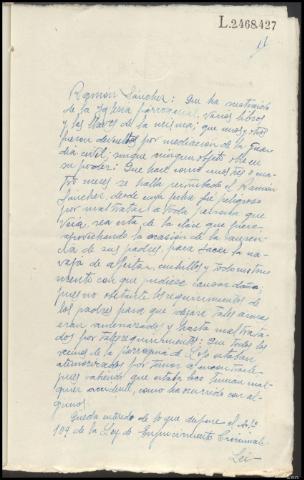 L.2468.427
11
Ramon Sánchez: Que ha sustraido
de la Iglesia parroquial, varios libros
y las llaves de la misma, que unos y otros
fueron devueltos por mediacion de la Guar-
dia civil, sin que ningun objeto obre en
su poder: Que hace como unos tres o cua-
tro meses se halla perturbado el Ramon
Sánchez, desde cuya fecha fue peligroso
por maltratar a toda persona que
veia, sea esta de la clase que fuera,
aprovechando la ocasion de la ausen-
cia de sus padres, para sacar la na-
vaja de afeitar, cuchillos y todo instru-
mento con que pudiese causar daño,
pues no obstante los requerimientos de
los padres para que dejase tales armas
eran amenazados y hasta maltrata-
dos por tales requerimientos: Que todos los
vecinos de la parroquia de estaban
atemorizados por temor a encontrarle
pues sabiendo que estaba loco temian cual-
quier accidente, como ha ocurrido con al-
gunos.
Queda enterado de lo que dispone el Artº
109 de la Ley de Enjuiciamiento Criminal.
Lei-